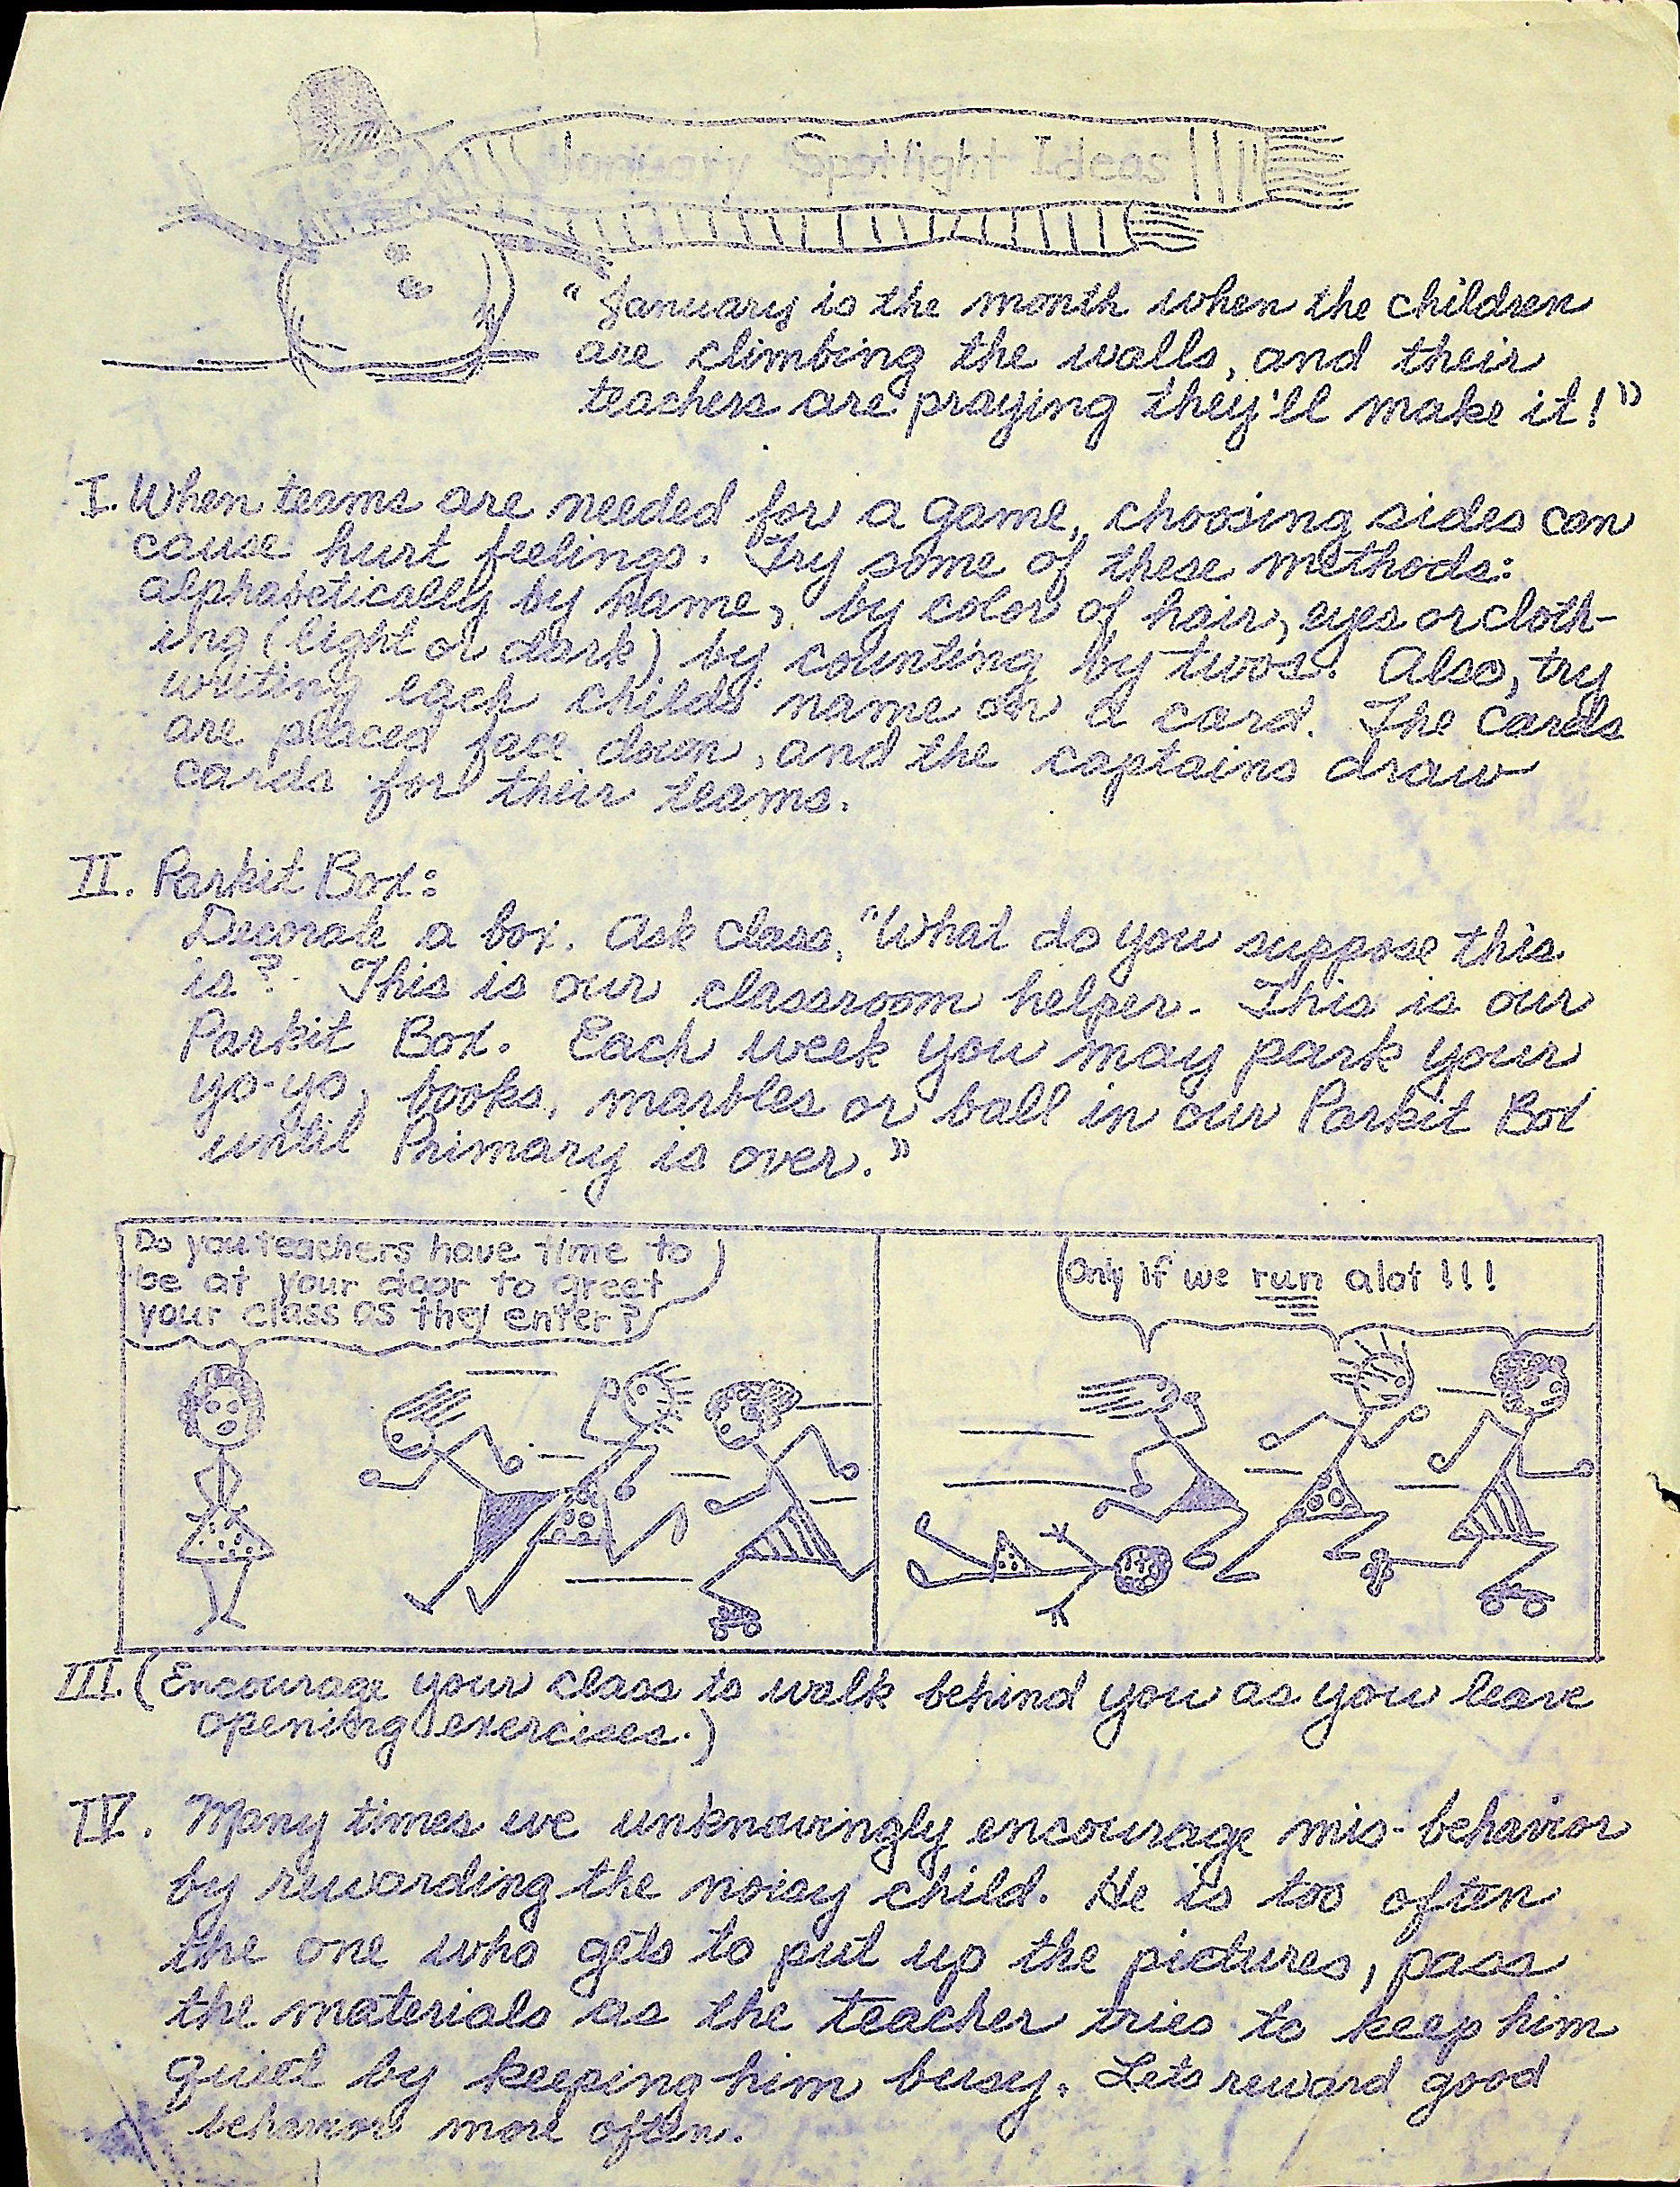 January Spotlight Ideas
"January is the month when the children
are climbing the walls, and their
teachers are praying they'll make it!"
I. When teams are needed for a game, choosing sides can
cause hurt feelings. Try some of these methods:
alphabetically by name, by color of hair, eyes or cloth-
ing (light or dark) by counting by twos. Also, try
writing each childs' name on a card. The cards
are placed face down, and the captains draw
cards for their teams.
II. Parkit Box:
Decorate a box. Ask class, "What do you suppose this
is? This is our classroom helper. This is our
Parkit Box. Each week you may park your
yo-yo, books, marbles or ball in our Parkit Box
until Primary is over."
Do you teachers have time to
be at your door to greet
your class as they enter?
Only if we run alot!!!
III. (Encourage your class to walk behind you as you leave
opening exercises.)
IV. Many times we unknowingly encourage mis-behavior
by rewarding the noisy child. He is too often
the one who gets to put up the pictures, pass
the materials as the teacher tries to keep him
quiet by keeping him busy. Lets reward good
behavior more often.